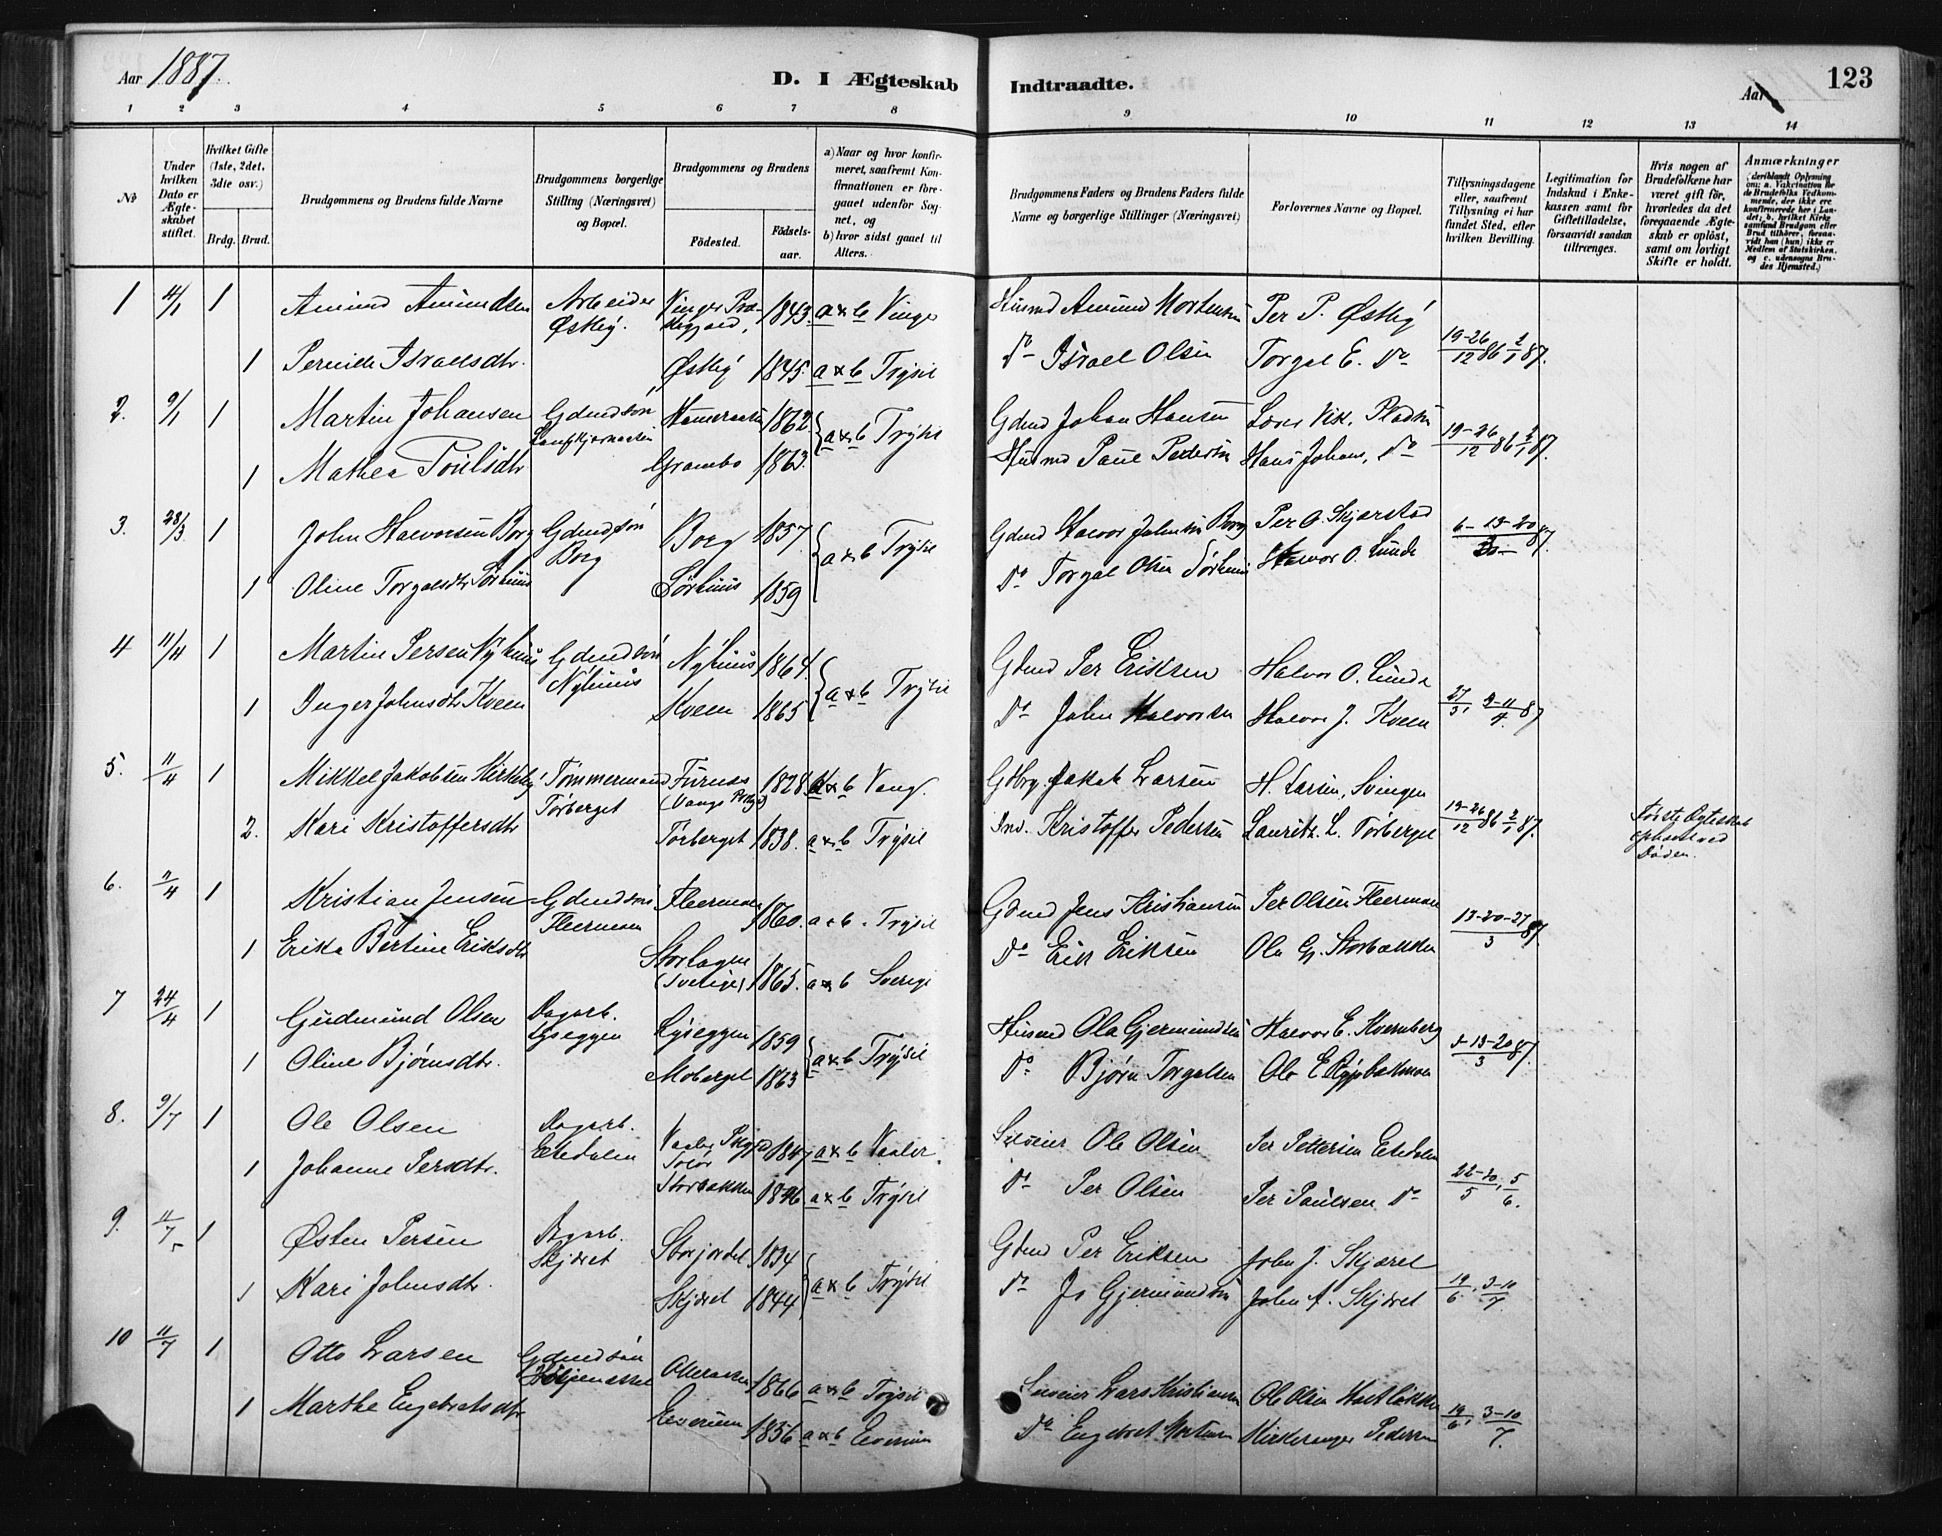 Aar 1887.
D. I Ægteskab Indtraadte.
Aar
123
1 2 3 4 5 6 7 8 9 10 11 12 13 14
No
Under hvilken Dato er Ægteskabet stiftet.
Hvilket Gifte (1ste, 2det, 3die osv.)
Brdg. Brud.
Brudgommens og Brudens fulde Navne
Brudgommens borgerlige Stilling (Næringsvei) og Bopæl.
Brudgommens og Brudens
Fødested.
Fødselsaar.
a) Naar og hvor konfirmeret, saafremt Konfirmationen er foregaaet udenfor Sognet, og
b) hvor sidst gaaet til Alters.
Brudgommens Faders og Brudens Faders fulde Navne og borgerlige Stillinger (Næringsvei)
Forlovernes Navne og Bopæl.
Tillysningsdagene eller, saafremt Tillysning ei har fundet Sted, efter hvilken Bevilling.
Legitimation for Indskud i Enkekassen samt for Giftetilladelse, forsaavidt saadan tiltrænges.
Hvis nogen af Brudefolkene har været gift før, hvorledes da det foregaaende Ægteskab er opløst, samt om lovligt Skifte er holdt.
Anmærkninger (deriblandt Oplysning om: a. Vaccination for de Brudefolks Vedkommende, der ikke ere konfirmerede her i Landet; b. hvilket Kirkesamfund Brudgom eller Brud tilhører, forsaavidt han (hun) ikke er Medlem af Statskirken, og c. udensogns Brudes Hjemsted.)
1 4/1 1 Amund Amundsen Arbeider Østby. Vinger Præstegjæld, 1843. a & b Vinger Husmd Amund Mortensen Per P. Østby
1 Pernille Israelsdtr. Østby 1845. a & b Trysil Do Israel Olsen Torgal E. Do 19-26/12 86 2/1 87.
2. 9/1 1 Martin Johansen Gdmdsøn 1862. a & b Trysil Gdmd Johan Hansen Lars Vik. Pladsen
1 Mathea Poulsdtr Grambo 1863. Husmd Paul Pedersen Hans Johans. Do 19-26/12 86 2/1 87.
3. 28/3 1 John Halvorsen Borg Gdmdsøn Borg Borg 1857. a & b Trysil Gdmd Halvor Johnsen Borg Per O. Skjærstad
1 Oline Torgalsdtr Sørhuus Sørhuus 1859 Do Torgal Olsen Sørhuus Halvor O. Lunde 6-13-20 87.
4 11/4 1 Martin Persen Nyhuus Gdmdsøn Nyhuus Nyhuus 1864. a & b Trysil Gdmd Per Eriksen Halvor O. Lunde
1 Inger Johnsdtr Kveen Kveen 1865 Do John Halvorsen Halvor J. Kveen 27/3, 3-11/4. 87
5. 11/4 1 Mikkel Jakobsen Kirkeby Tømmermand Tørberget Furnes (Vangs Prstgj) 1828. a & b Vang. Gdbrg. Jakob Larsen H. Larsen, Svingen
2. Kari Kristoffersdtr Tørberget 1838. a & b Trysil Ind. Kristoffer Pedersen Lauritz L. Tørberget 19-26/12 86 2/1 87. Første Ægteskab ophævet ved Døden.
6. 2/4 1 Kristian Jensen Gdmdsøn Flermoen Flermoen 1860. a & b. Trysil Gdmd Jens Kristiansen Per Olsen Flermoen
1 Erika Bertine Eriksdtr (Sverige) 1865. a & b Sverige Do Erik Eriksen Ola G. Storbækken 13-20-27/3 87.
7 24/4 1 Gudmund Olsen Dagarb. Lyseggen Lyseggen 1859 a & b Trysil Husmd Ola Gjermundsen Halvor E. Kvernberg
1 Oline Bjørnsdtr. Moberget 1863 Do Bjørn Torgalsen 13-20/3 87.
8. 9/7 1 Ole Olsen Dagarb. Eltdalen Vaaler Prgj 1847 a & b Vaaler. Selveier Ole Olsen Per Pettersen Eltdalen
1 Johanne Persdtr. Storbækken 1846 a & b Trysil Do Per Olsen Per Paulsen Do 5/6.
9. 11/7 1 Østen Persen Dagarb. Skjæret Storjordet 1834 a & b Trysil Gdmd Per Eriksen John J. Skjæret
1 Kari Johnsdtr. Skjæret 1844 Do Jo Gjermundsen John A. Skjæret 19/6, 3-10/7
10 11/7 1 Otto Larsen Gdmdsøn 1866 a & b Trysil Selveier Lars Kristiansen Ole Olsen
1 Marthe Engebretsdtr Elverum 1856 a & b Elverum Do Engebret Mortensen Kirkesanger Pedersen 19/6, 3-10/7.